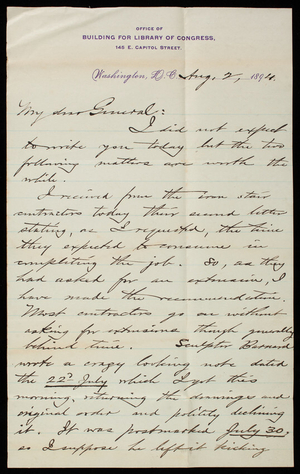 OFFICE OF
BUILDING FOR LIBRARY OF CONGRESS,
145 E. CAPITOL STREET.
Washington, D. C. Aug. 2, 1894.
My dear General:
I did not expect
to write you today but the two
following matters are worth the
while.
I received from the iron stair
contractors today their second letter
stating, as I requested, the time
they expected to consume in
completing the job. So, as they
had asked for an extension, I
have made the recommendation.
Most contractors go on without
asking for extensions though generally
behind time. Sculptor Barnard
wrote a crazy looking note dated
the 22d July which I got this
morning, returning the drawings and
original order and politely declining
it. It was postmarked July 30,
so I suppose he left it kicking